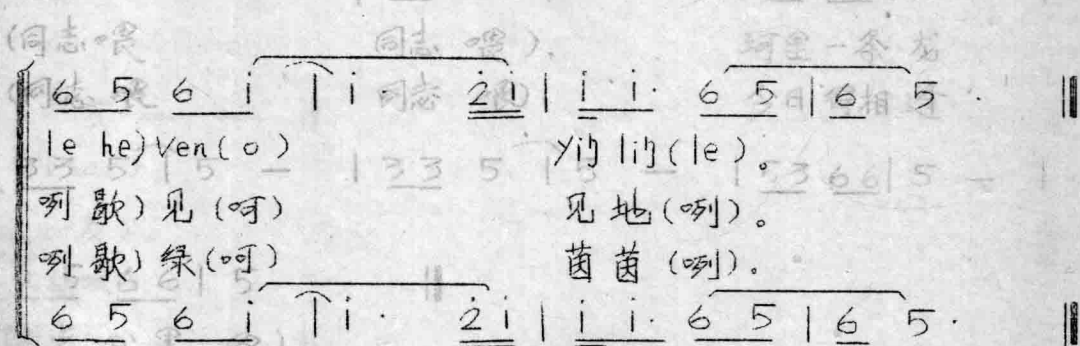 6 5 6 i | i · 2 i | i i · 6 5 | 6 5 · ‖
le he) Ven (o) Yiŋ liŋ (le)。
咧 歌) 见 (呵) 见 地 (咧)。
咧 歌) 绿 (呵) 茵 茵 (咧)。
6 5 6 i | i · 2 i | i i · 6 5 | 6 5 · ‖